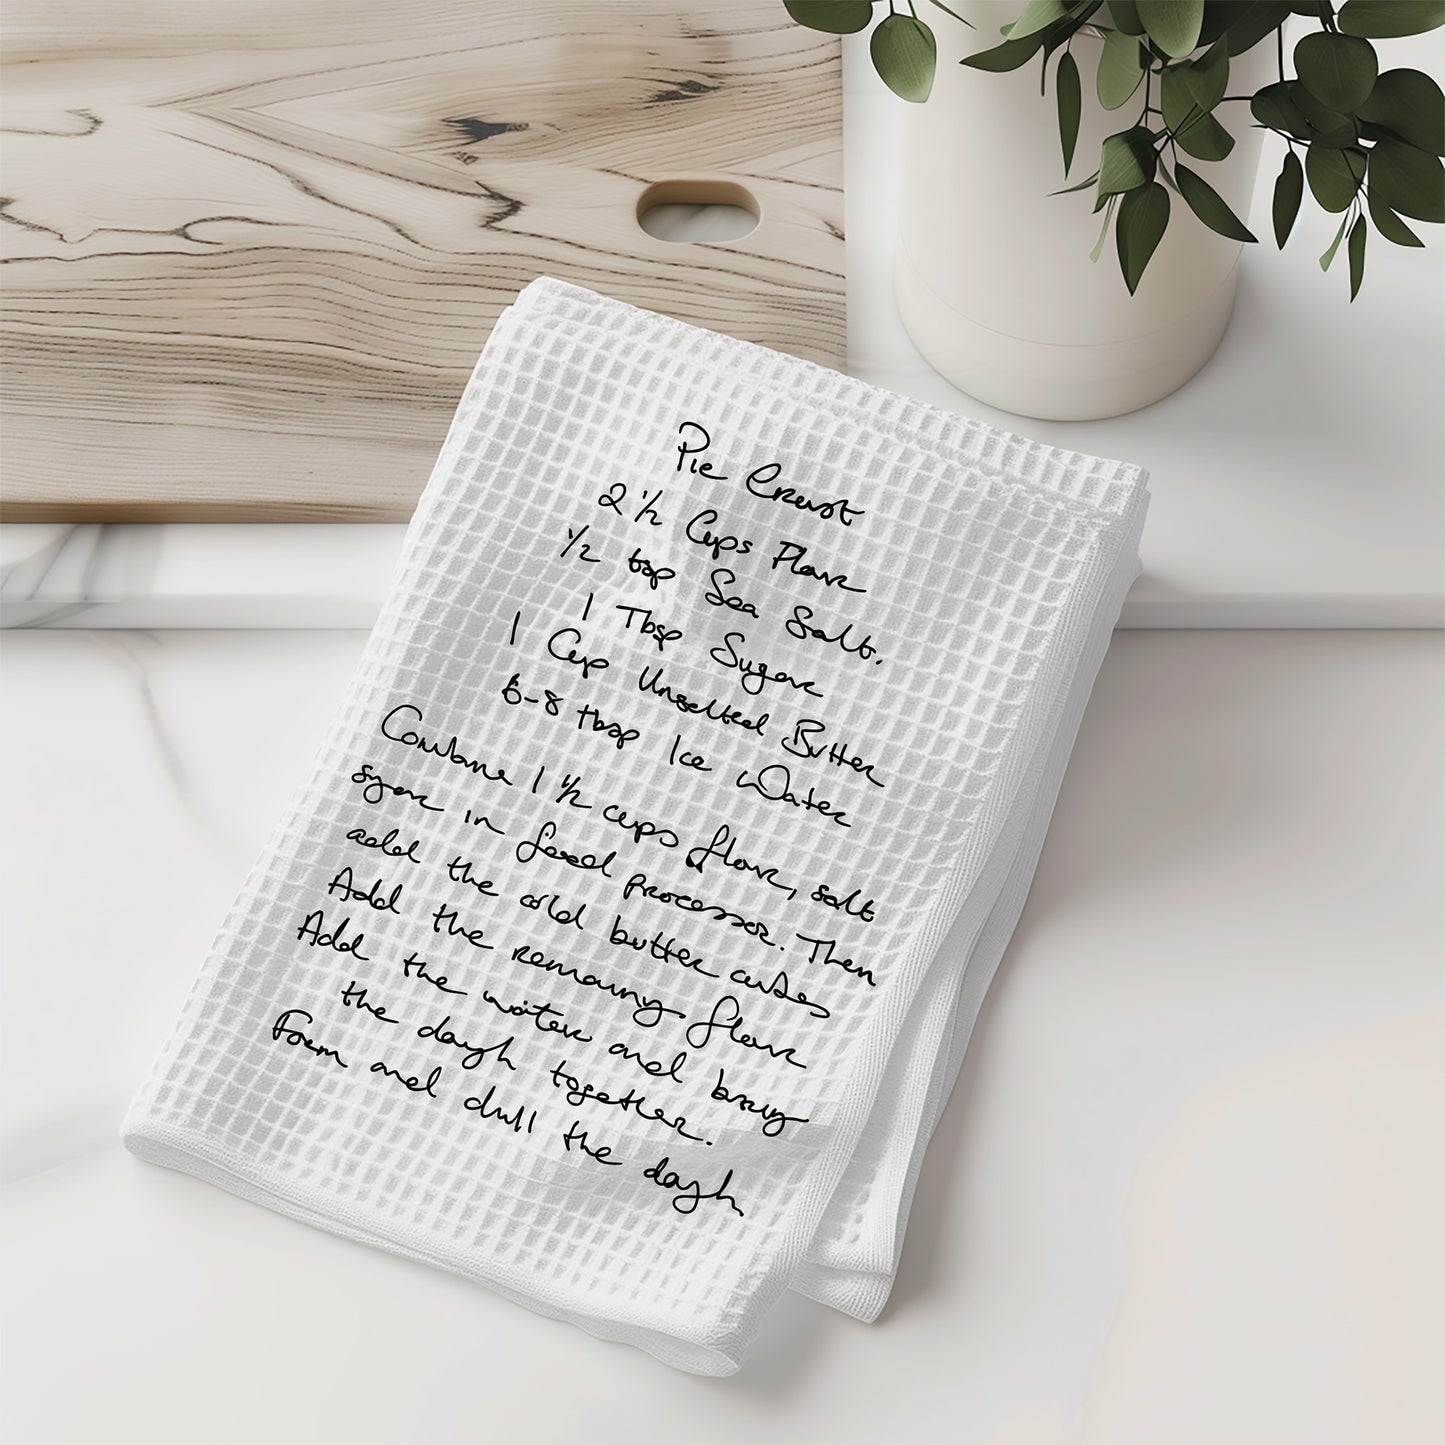 Pie Crust
2 1/2 Cups Flour
1/2 tsp Sea Salt.
1 Tbsp Sugar
1 Cup Unsalted Butter
6-8 tbsp Ice Water
Combine 1 1/2 cups flour, salt
sugar in food processor. Then
add the cold butter cubes
Add the remaining flour
Add the water and bring
the dough together.
Form and chill the dough